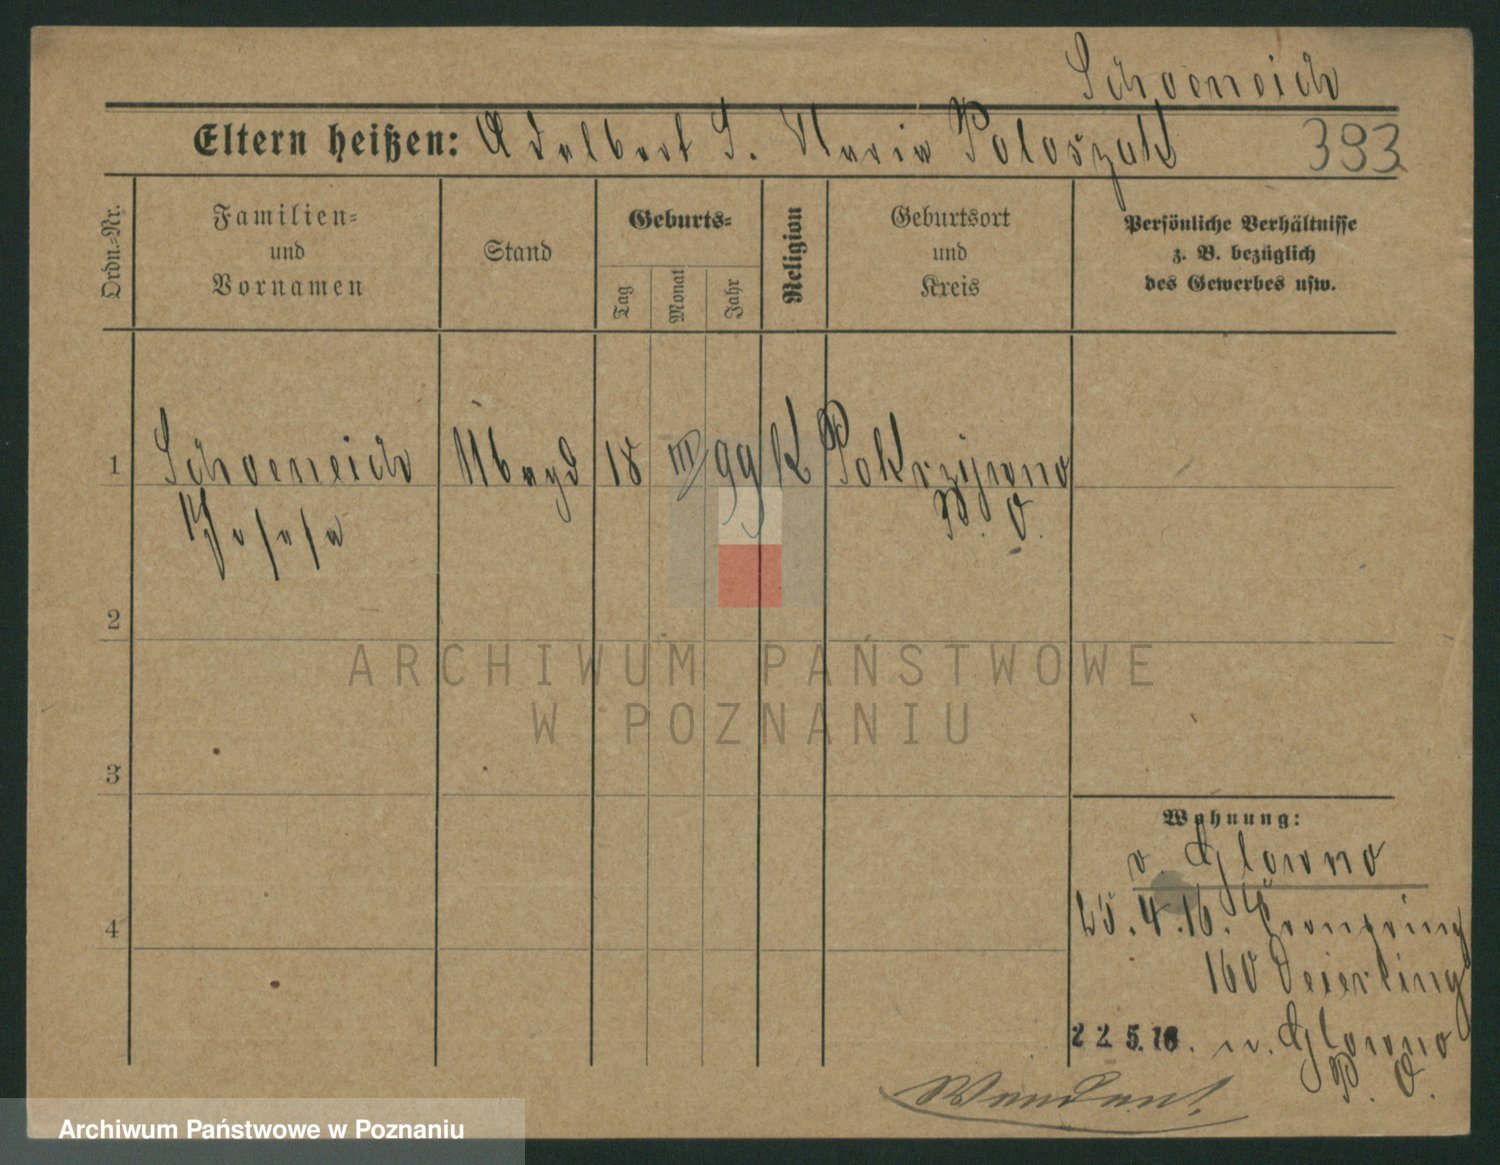 Schoeneich
Eltern heißen: Adalbert S. Maria Poloszyk
393
Ordn.-Nr.
Familien-
und
Vornamen
Stand
Geburts-
Tag
Monat
Jahr
Religion
Geburtsort
und
Kreis
Persönliche Verhältnisse
z. B. bezüglich
des Gewerbes usw.
1 Schoeneich Magd 18 III 99 K Pokrzywno
Josefa P. O.
2
ARCHIWUM PAŃSTWOWE
W POZNANIU
3
Wohnung:
v. Glowno
4
25.4.16. Kronpring
160 Deierling
22.5.16. n. Glowno
P. O.
Wenden!
Archiwum Państwowe w Poznaniu